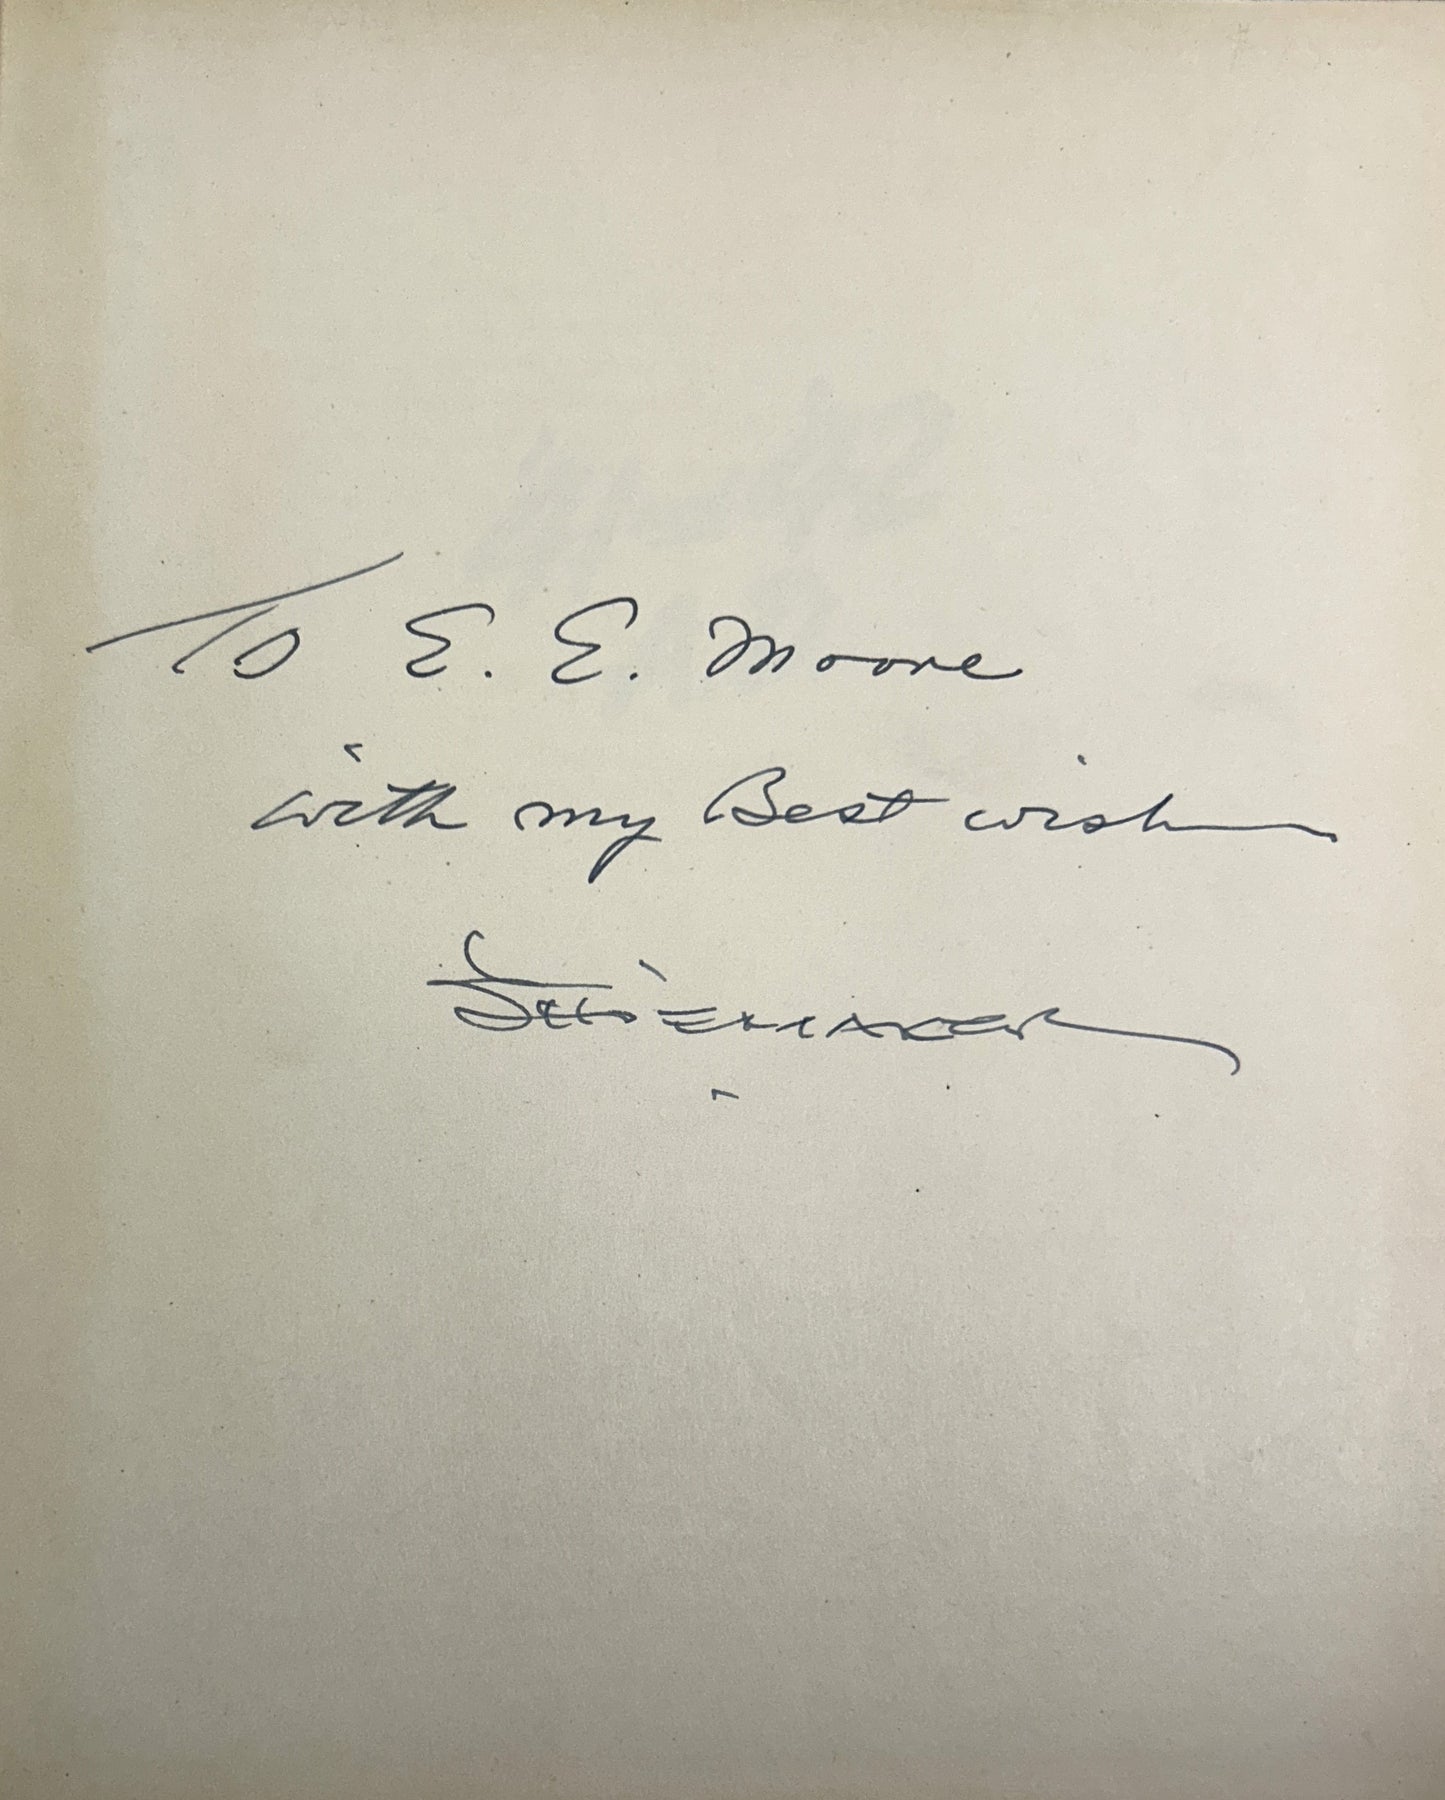 To E. E. Moore
with my Best wishes
Shoemaker